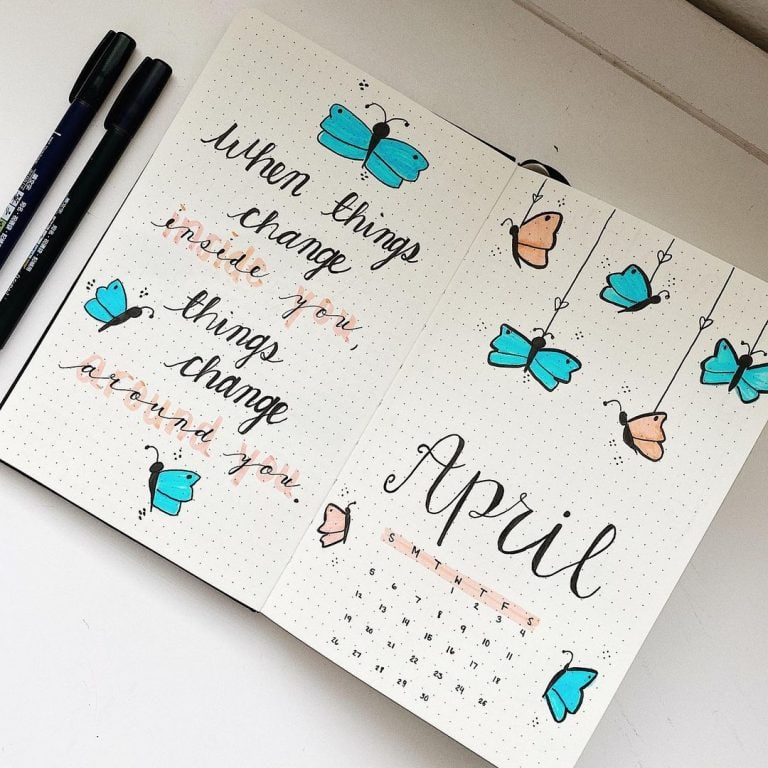 When things
change
inside you,
things
change
around you.
April
S M T W T F S
1 2 3 4
5 6 7 8 9 10 11
12 13 14 15 16 17 18
19 20 21 22 23 24 25
26 27 28 29 30